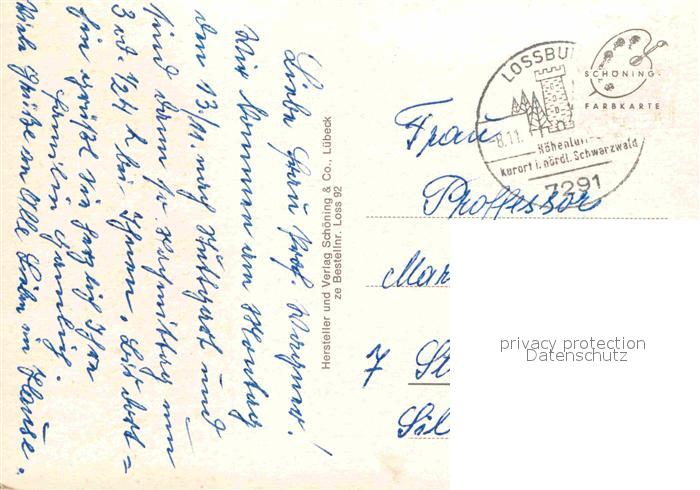 Liebe Frau Prof. Wagner!
Wir kommen am Montag
den 13/11. nach Stuttgart und
sind dann so Nachmittag um
3 od. 1/2 4 h bei Ihnen,
Sie grüßt Sie herzlich Ihre
Familie
Viele Grüße an Alle Lieben im Hause.
Hersteller und Verlag Schöning & Co., Lübeck
ze Bestellnr. Loss 92
LOSSBU
8.11.
Höhenluft
Kurort i. nördl. Schwarzwald
7291
SCHÖNING
FARBKARTE
Frau
Proffessor
Mar
7 St
Sil
privacy protection
Datenschutz